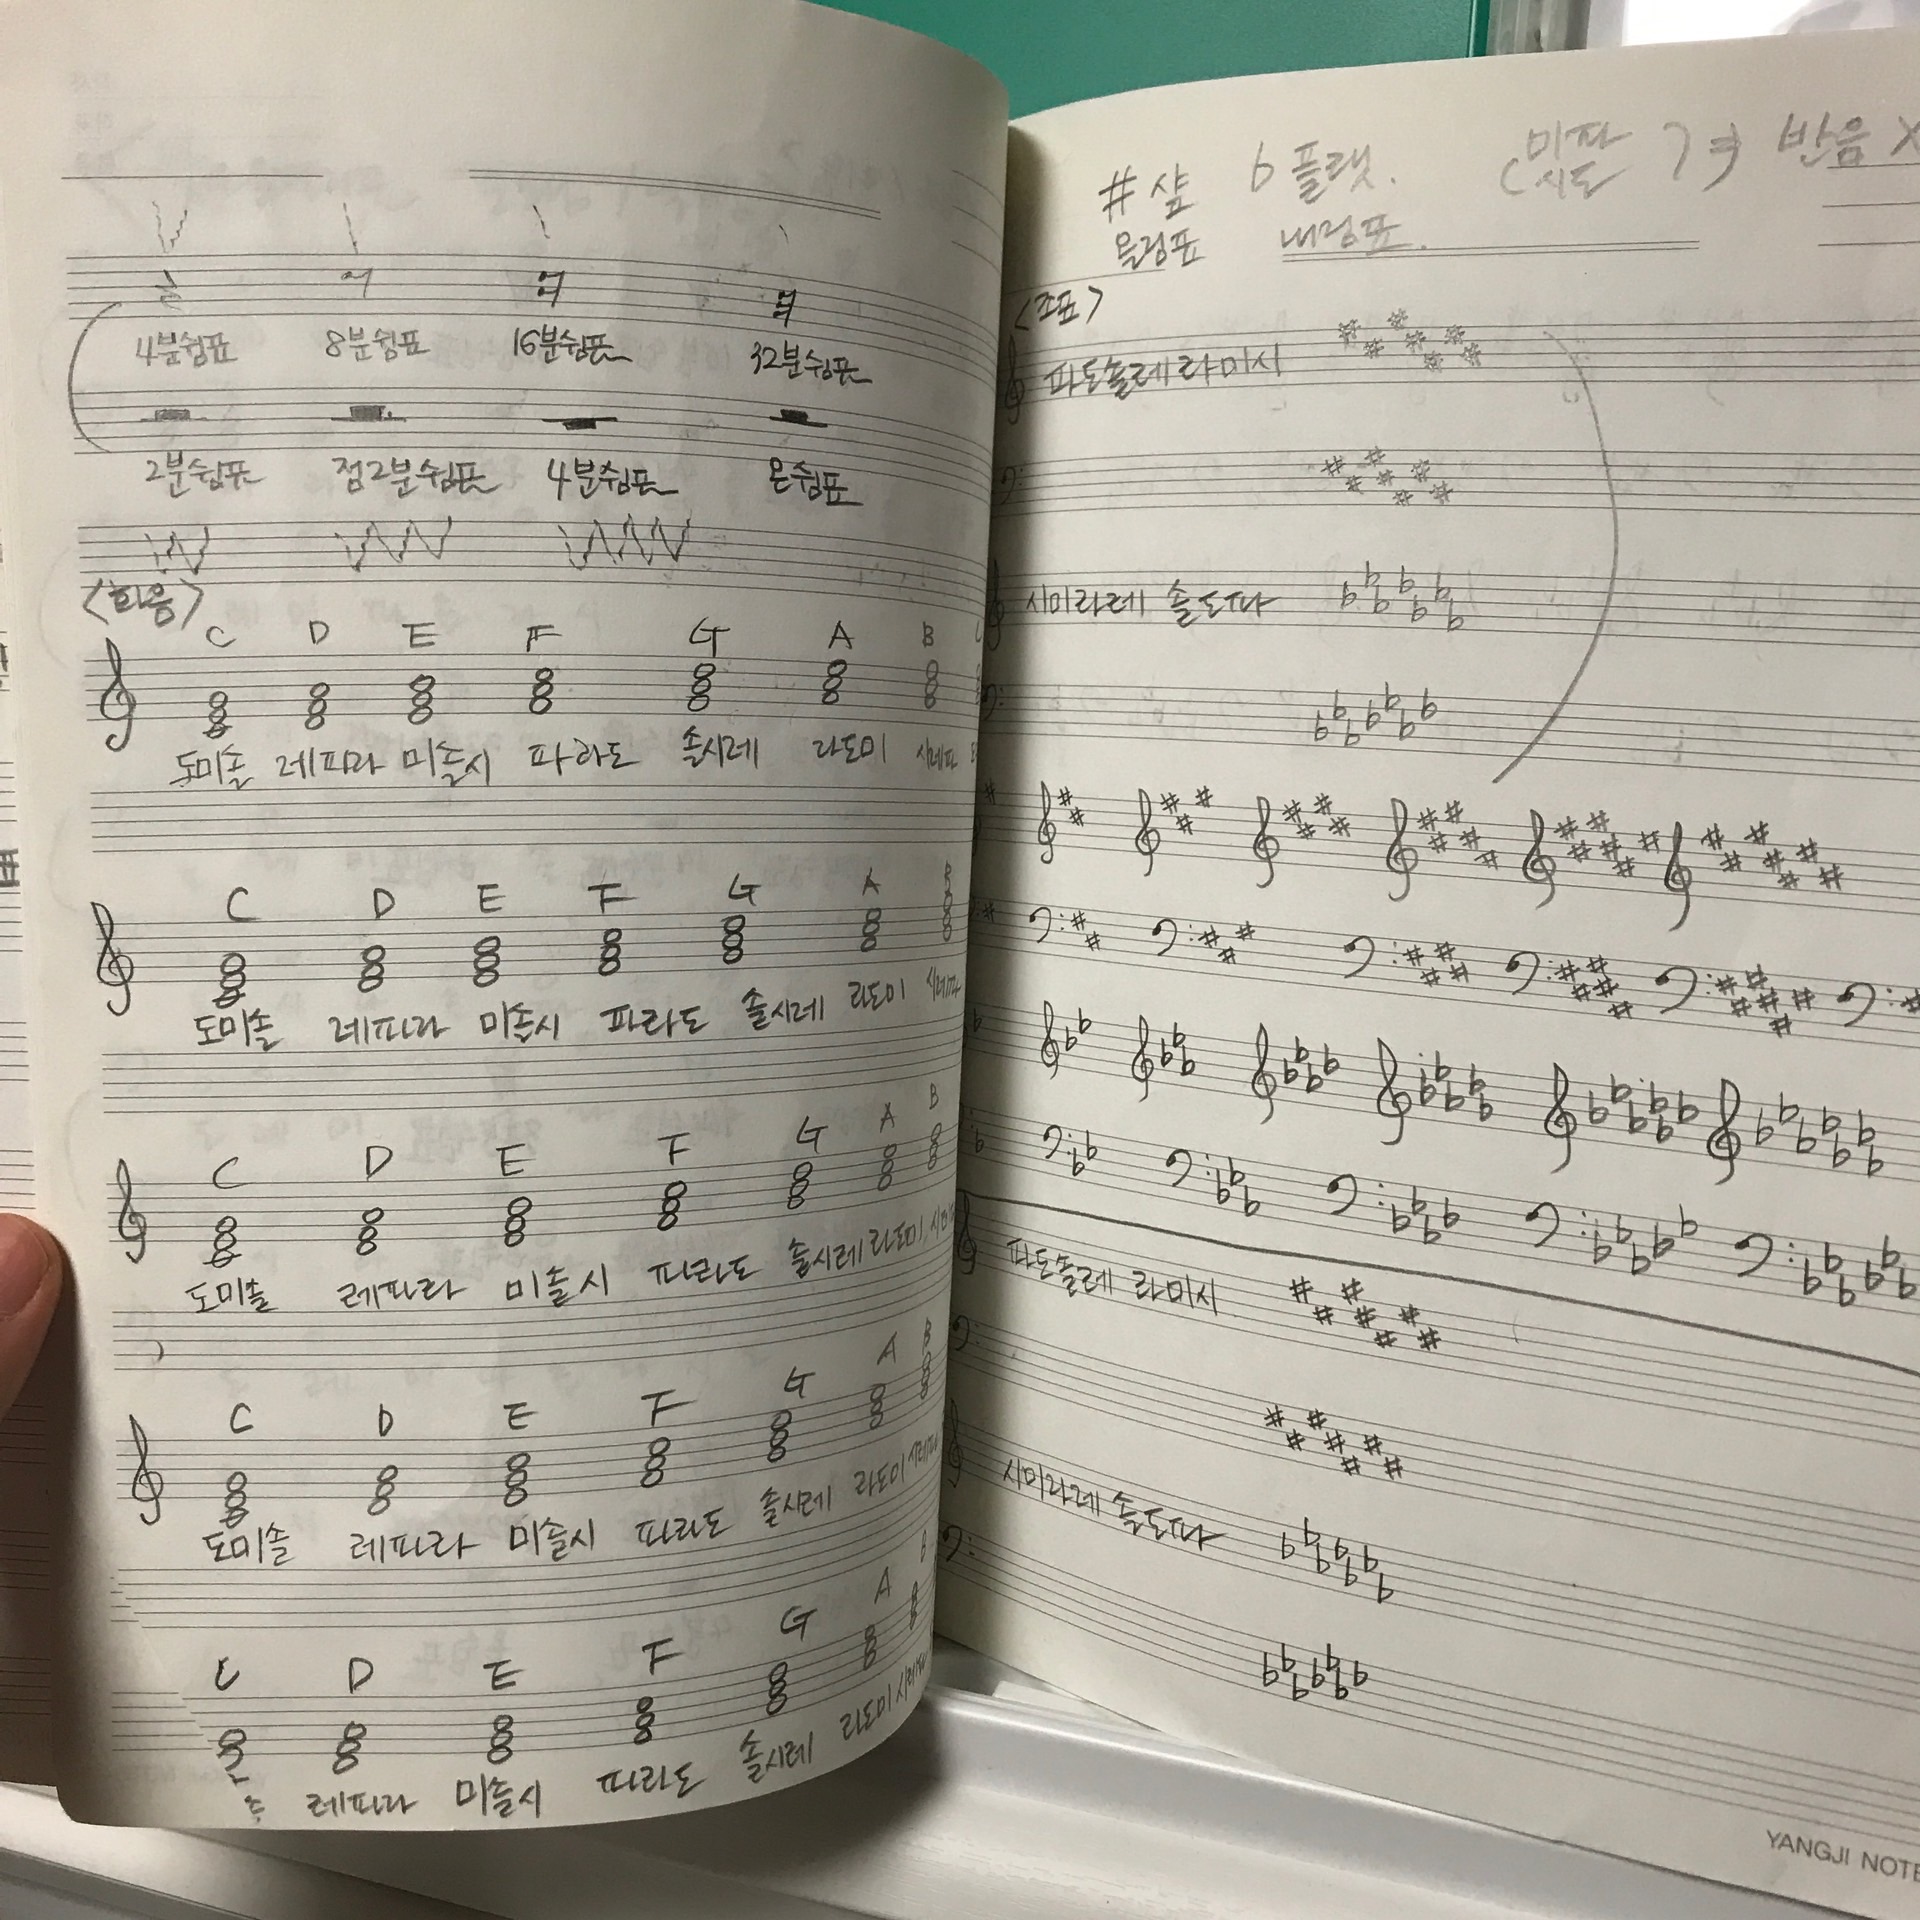 4분쉼표 8분쉼표 16분쉼표 32분쉼표
2분쉼표 점2분쉼표 4분쉼표 온쉼표
<화음>
C D E F G A B
도미솔 레파라 미솔시 파라도 솔시레 라도미 시레파
C D E F G A B
도미솔 레파라 미솔시 파라도 솔시레 라도미 시레파
C D E F G A B
도미솔 레파라 미솔시 파라도 솔시레 라도미
C D E F G A B
도미솔 레파라 미솔시 파라도 솔시레 라도미 시레파
C D E F G A B
레파라 미솔시 파라도 솔시레 라도미 시레파
# 샾 b 플랫. 미파 반음 X
올림표 내림표. 시도
<조표>
파도솔레라미시
시미라레 솔도파
파도솔레 라미시
시미라레솔도파
YANGJI NOTE